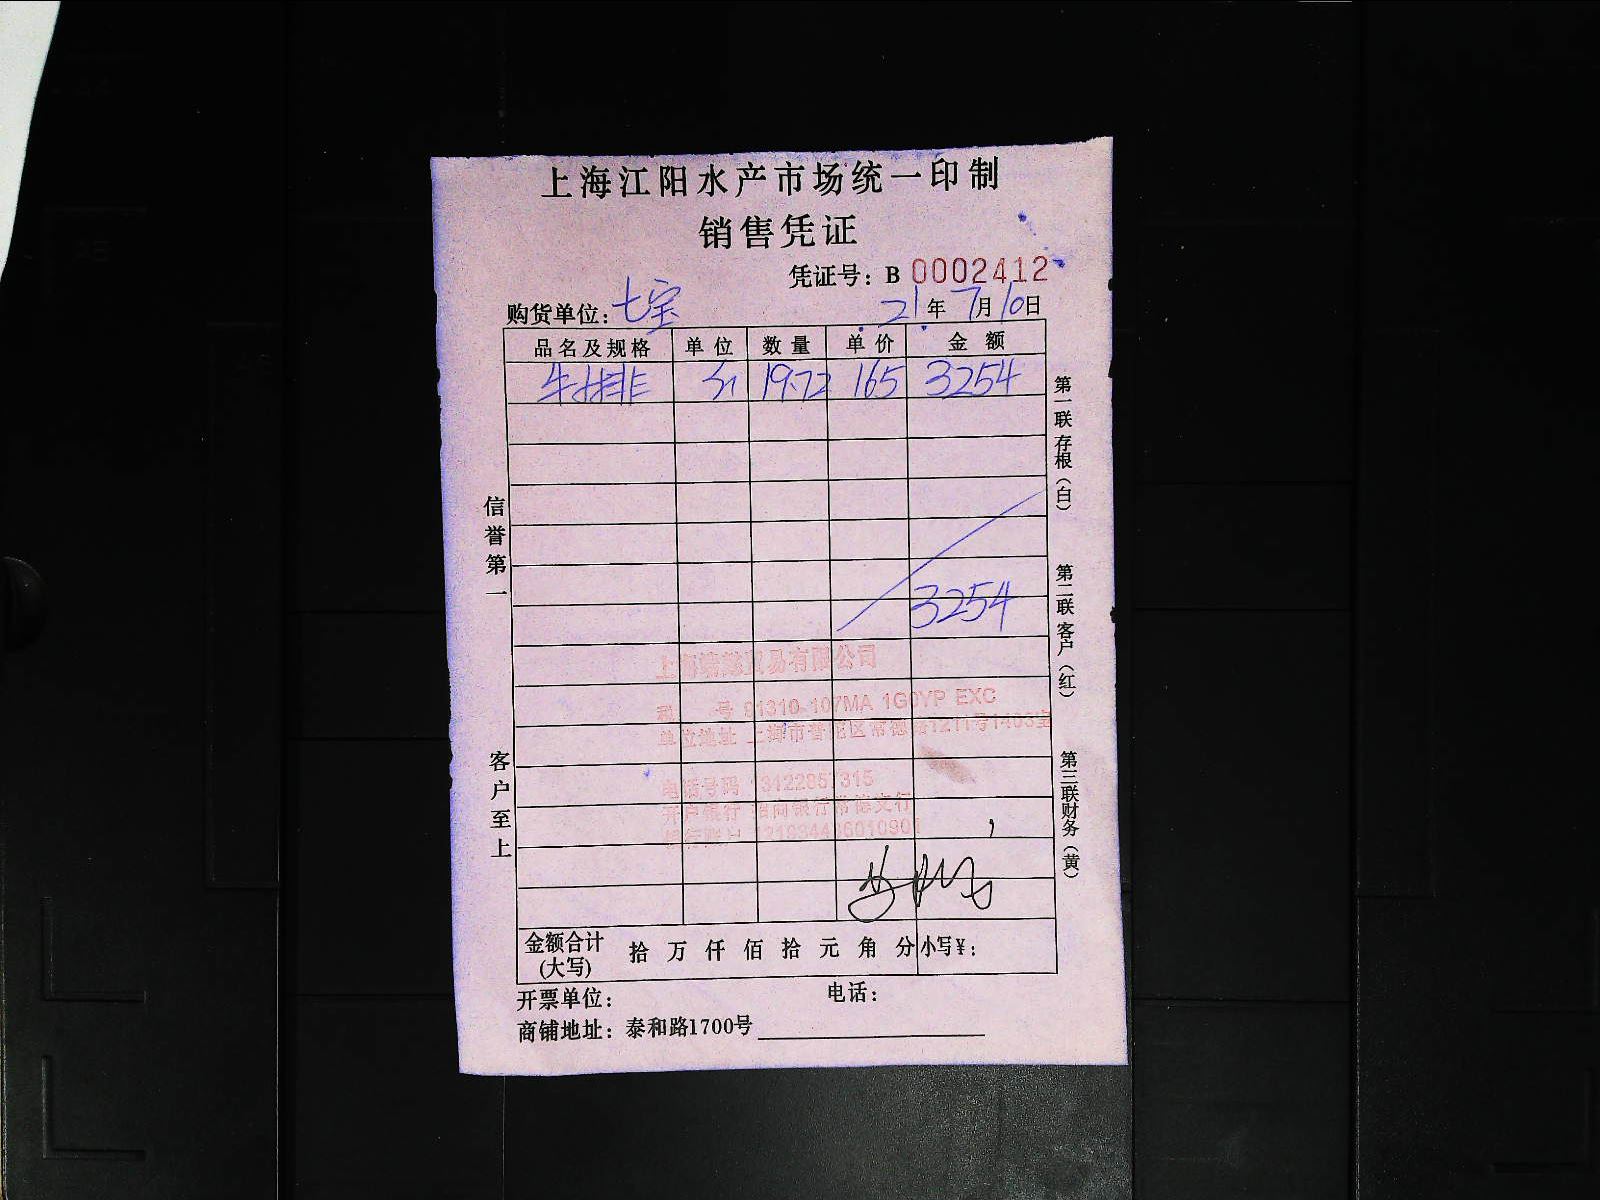 上海江阳水产市场统一印制
销售凭证
凭证号：B 0002412
购货单位：七宝 21年7月10日
品名及规格 单位 数量 单价 金额
牛排 19.72 165 3254
3254
上海 贸易有限公司
税 号
单位地址 上海市普陀区常德路1211号1403室
电话号码
开户银行 招商银行常德支行
金额合计(大写) 拾 万 仟 佰 拾 元 角 分 小写¥：
开票单位： 电话：
商铺地址：泰和路1700号
信誉第一
客户至上
第一联存根（白）
第二联客户（红）
第三联财务（黄）